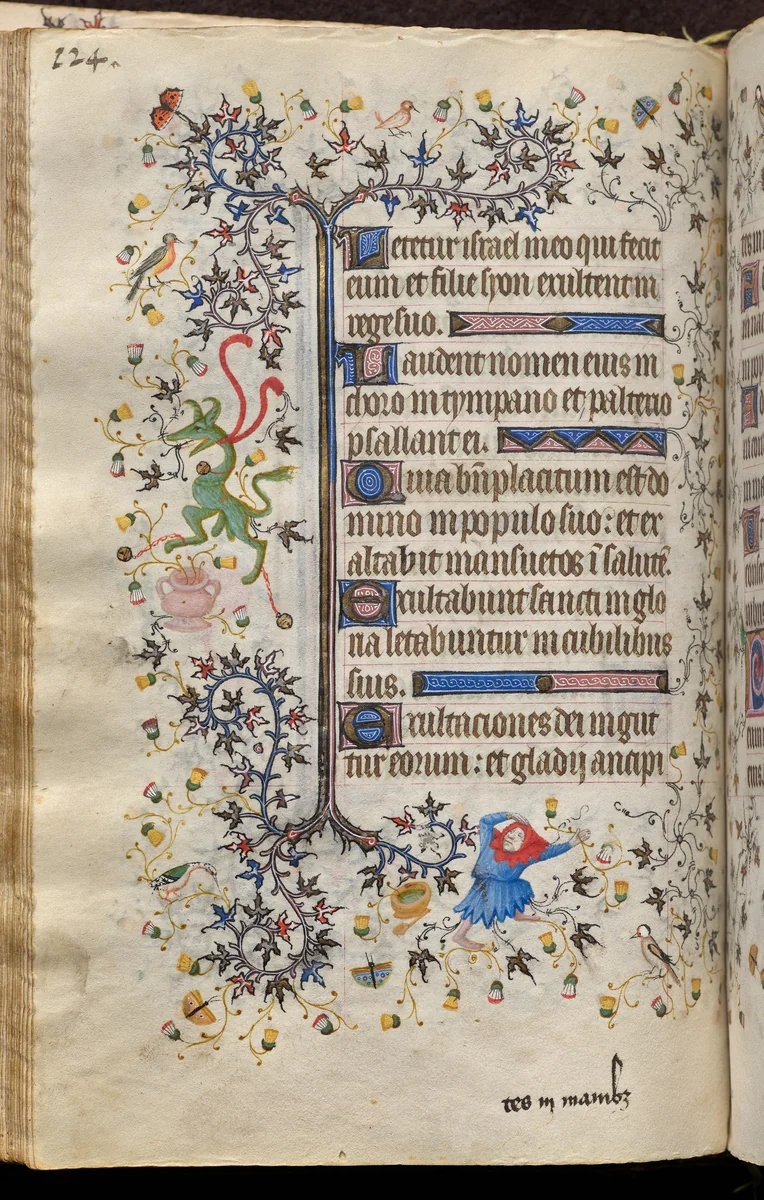 224.
Letetur israel in eo qui fecit
eum et filie syon exultent in
rege suo.
Laudent nomen eius in
choro in tympano et psalterio
psallant ei.
Quia bn̄placitum est do
mino in populo suo: et ex
altabit mansuetos ī salutē.
Exultabunt sancti in glo
ria letabuntur in cubilibus
suis.
Exultaciones dei in gut
tur eorum: et gladij ancipi
tes in manibꝫ